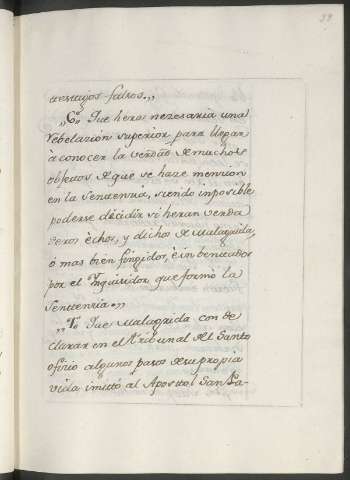 39
testigos falsos.,,
,,6.º Que hera nezesaria una
Rebelazion superior para llegar
à conocer la verdad de muchos
obgetos de que se haze menzion
en la Sentenzia, siendo inposible
poderse dezidir si heran verda
deros èchos, y dichos de Malagrida,
ò mas bien fingidos, è inbentados
por el Ynquisidor que formò la
Sentenzia.,,
,,7.º Que Malagrida con de
clarar en el tribunal del Santo
ofizio algunos pasos de su propia
vida imitò al Apostol San Pa-